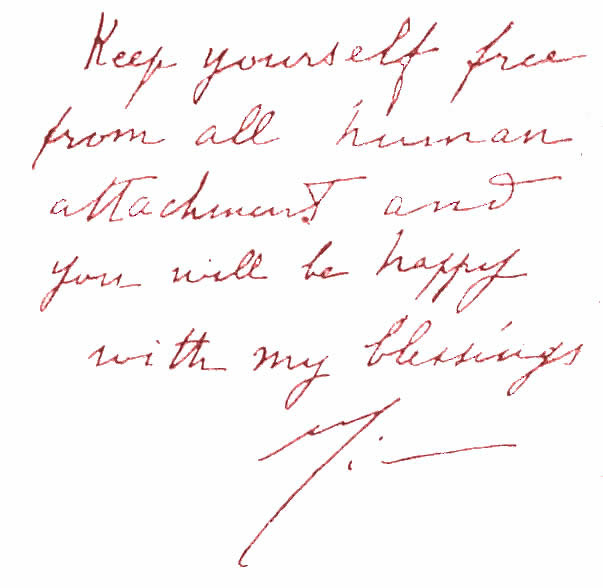 Keep yourself free
from all human
attachment and
you will be happy
with my blessings